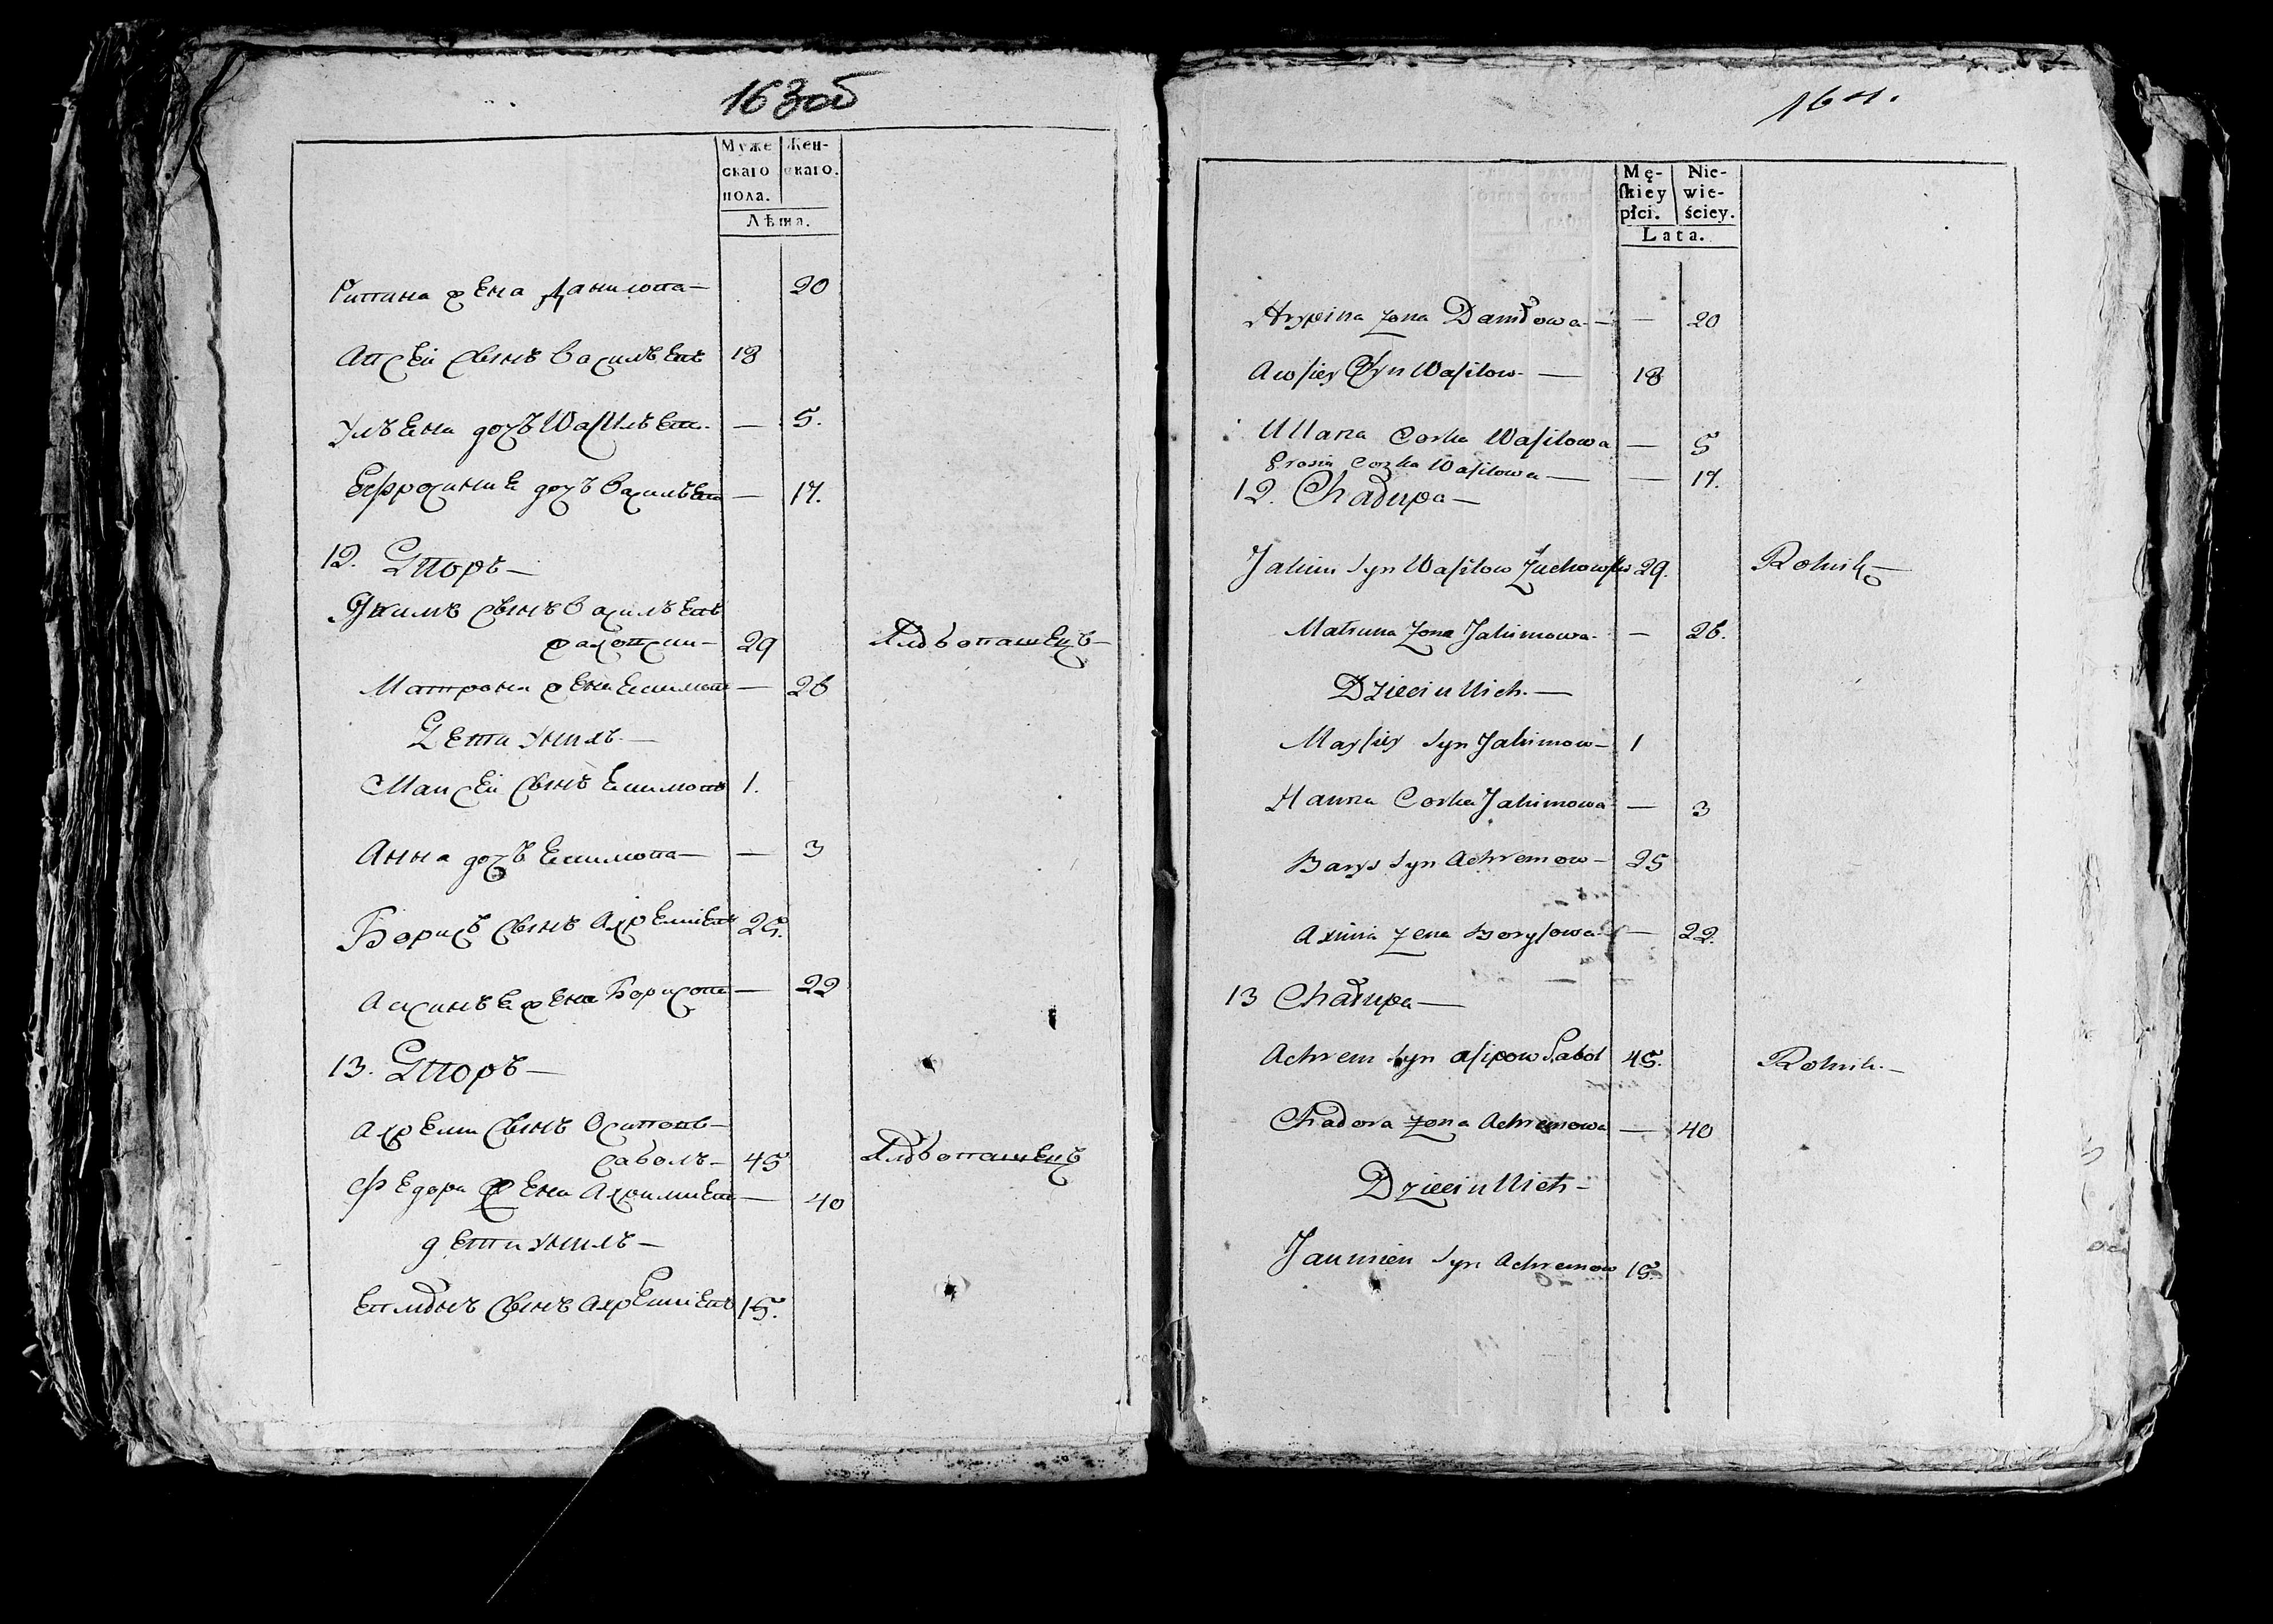 163об
Муже
скаго
пола.
Жен-
скаго.
Лѣта.
жена Данилова — 20
Авсей сынъ Васильевъ 18
Ульяна дочъ Wасильева — 5.
Ефросиния дочъ Васильева — 17.
12. Дворъ —
Якимъ сынъ Васильевъ
29 Хлѣбопашецъ —
Матрона жена Екимова — 26
Дети у нихъ —
Мапсей сынъ Екимовъ 1.
Анна дочъ Екимова — — 3
Борисъ сынъ Ахремiевъ 25.
Аксинья жена Борисова — 22
13. Дворъ —
Ахрем сынъ Осиповъ —
Саболь — 45 Хлѣбопашецъ
Федора жена Ахримиева — 40
дети у нихъ —
сынъ Ахремiевъ 15.
164.
Mę-
ſkiey
płci.
Nie-
wie-
ściey.
Lata.
Arypina zona Daniłowa — — 20
Awſiey Syn Waſilow — 18
Ullana Corka Waſilowa — 5
Prosia Corka Waſilowa — — 17.
12. Chałupa —
Jakim Syn Waſilow Zuchowſki 29. Rolnik —
Matruna Zona Jakimowa — — 26.
Dzieci u Nich —
Mayſiey Syn Jakimow — 1
Hanna Corka Jakimowa — 3
Barys Syn Achremow — 25
Axinia Zena Boryſowa — — 22.
13 Chałupa —
Achrem Syn Aſipow Sabol 45. Rolnik —
Chadora Zona Achremowa — 40
Dzieci u Nich —
Jaumien Syn Achremow 15.